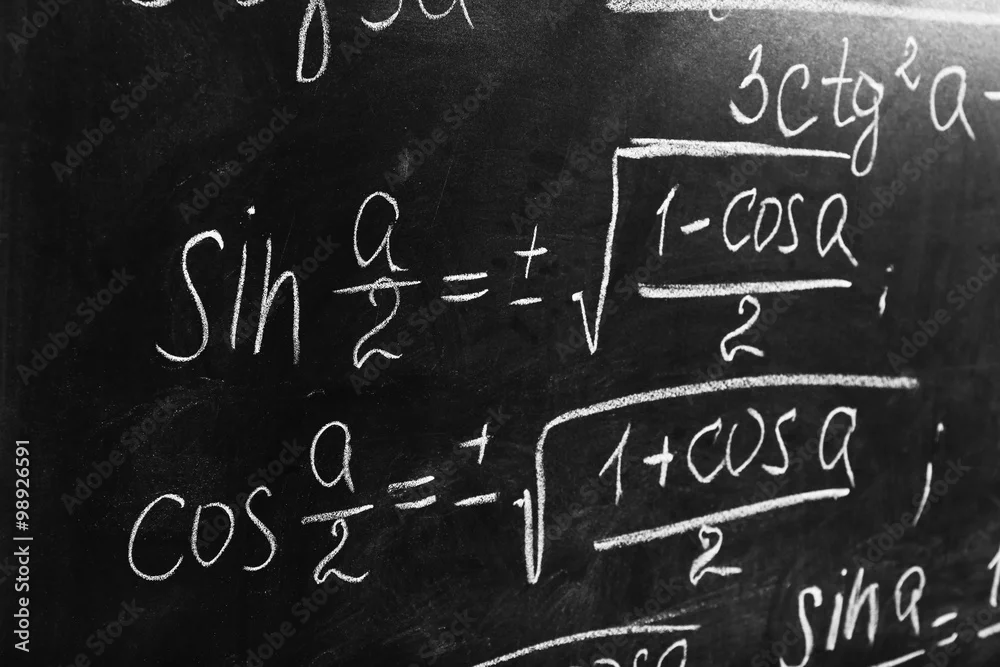 3ctg²a -
sin a/2 = ± √(1-cosa)/2 ;
cos a/2 = ± √(1+cosa)/2 ;
sina =
cosa
Adobe Stock | #98926591